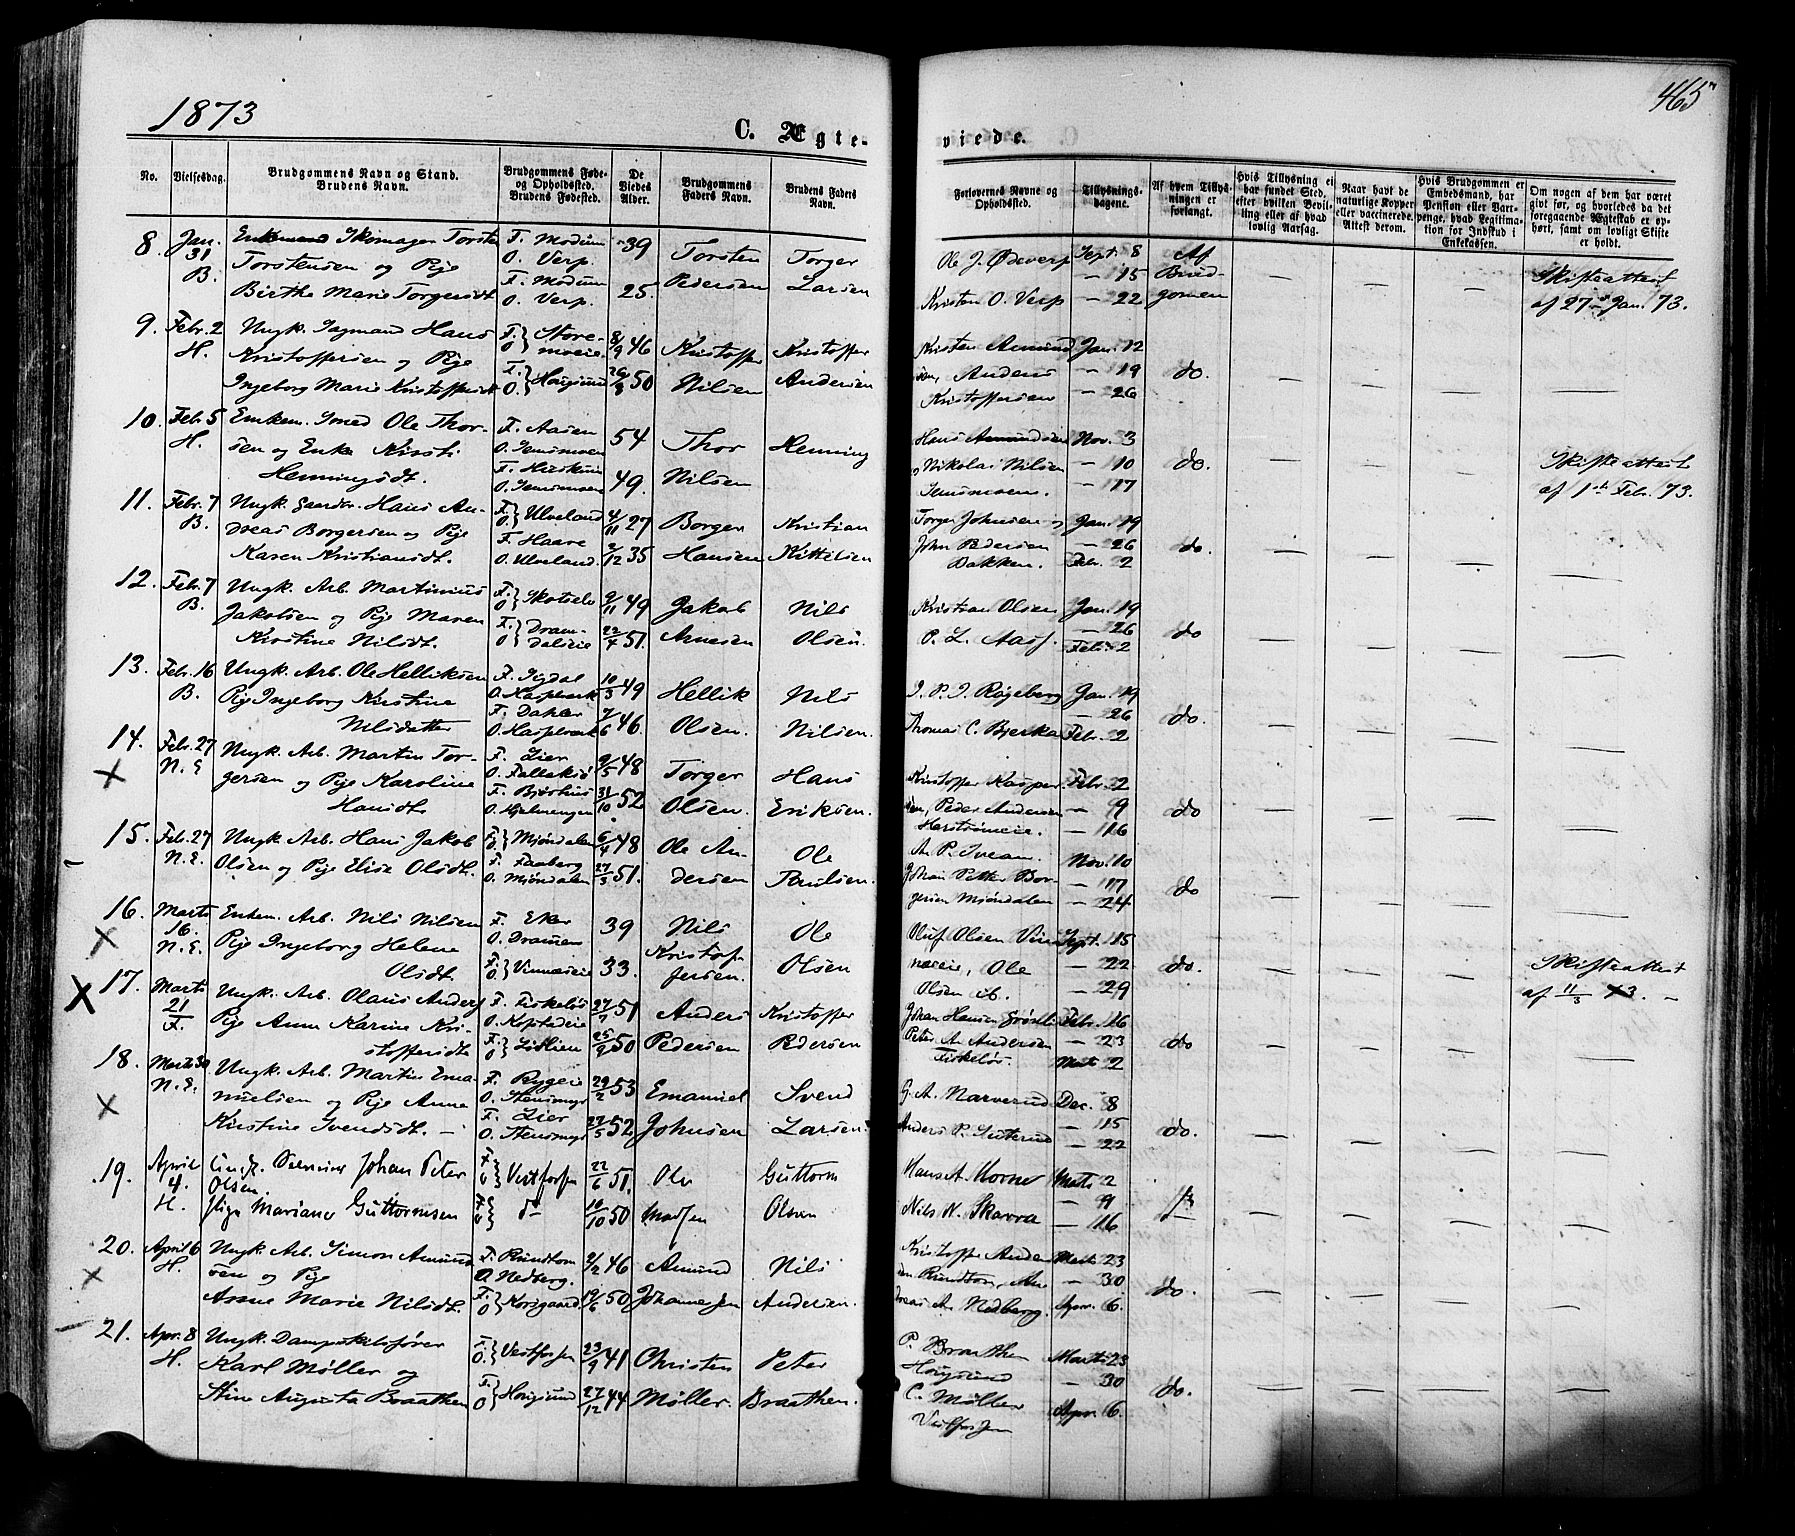 1873
465
C. Ægte-
viede.
No.
Vielsesdag.
Brudgommens Navn og Stand.
Brudens Navn.
Brudgommens Føde-
og Opholdssted.
Brudens Fødested.
De
Viedes
Alder.
Brudgommens
Faders Navn.
Brudens Faders
Navn.
Forlovernes Navne og
Opholdssted.
Tillysnings-
dagene.
Af hvem Tillys-
ningen er
forlangt.
Hvis Tillysning ei
har fundet Sted,
efter hvilken Bevil-
ling eller af hvad
lovlig Aarsag.
Naar havt de
naturlige Kopper
eller vaccinerede.
Attest derom.
Hvis Brudgommen er
Embedsmand, har
Pension eller Vart-
penge, hvad Legitima-
tion for Indskud i
Enkekassen.
Om nogen af dem har været
givt før, og hvorledes da det
foregaaende Ægteskab er op-
hørt, samt om lovligt Skifte
er holdt.
8. Jan. 31 B.
Enkemand Skomager Torsten
Torstensen og Pige
Birthe Marie Torgersdt.
F. Modum
O. Verp.
F. Modum
O. Verp.
39
25.
Torsten
Pedersen
Torger
Larsen
Ole J. Ødeverp
Kristen O. Verp
Sept. 8
— 15
— 22
Af
Brud-
gomen
Skifteattest
af 27de Jan. 73.
9. Febr. 2 H.
Ungk. Hans
Kristoffersen og Pige
Ingeborg Marie Kristoffersdt
F. O. Store-
moeie
F. O. Hougsund
8/9 46
26/8 50
Kristoffer
Nilsen
Kristoffer
Andersen
Kristen Amund
sen, Anders
Kristoffersen
Jan. 12
— 19
— 26
do.
10. Feb. 5 H.
Enkem. Smed Ole Thor-
sen og Enke Kirsti
Henningsdt.
F. Aasen
O. Semsmoen
O. Semsmoen
54
49.
Thor
Nilsen
Henning
Hans Amundsen
og Nikolai Nilsen
Semsmoen.
Nov. 3
— 10
— 17
do.
Skifteattest
af 1st Febr. 73.
11. Febr. 7 B.
Ungk. Gaardbr. Hans An-
dreas Borgersen og Pige
Karen Kristiansdt.
F. O. Ulveland
F. Haare
O. Ulveland.
4/11 27
2/12 35
Borger
Hansen
Kristian
Kittilsen
Torger Johnsen og
John Pedersen
Bakken.
Jan. 19
— 26
Febr. 2
do.
12. Feb. 7 B.
Ungk. Arb. Martinius
Jakobsen og Pige Maren
Kirstine Nilsdt.
F. O. Skotselv
F. O. Dram-
dalseie
9/11 49
22/4 51.
Jakob
Arnesen
Nils
Olsen.
Kristian Olsen
P. L. Aass.
Jan. 19
— 26
Febr. 2
do
13. Febr. 16 B.
Ungk. Arb. Ole Helliksen
Pige Ingeborg Kirstine
Nilsdatter
F. Sigdal
O. Haspelverk
F. Dahler
O. Haspelverk
10/3 49
7/6 46.
Hellik
Olsen.
Nils
Nilsen.
J. P. J. Rogeberg
Thomas C. Bjerka
Jan. 19
— 26
Febr. 2
do.
14. Febr. 27 N.E
Ungk. Arb. Martin Tor-
gersen og Pige Karoline
Hansdt.
F. Lier
O. Falleksø
F. Bjørkins
O. Hjelmengen
9/5 48
31/10 52
Torger
Olsen.
Hans
Eriksen.
Kristoffer Kasper
sen, Peder Andersen
Horstrømeie.
Febr. 2
— 9
— 16
do
15. Feb. 27 N.E.
Ungk. Arb. Hans Jakob
Olsen og Pige Elise Olsdt.
F. O. Mjøndalen
F. Faaberg
O. Mjøndalen
6/4 48
27/3 51.
Ole An-
dersen
Ole
Paulsen.
A. P. Sveaas.
Johan Petter Bor-
gersen Mjøndalen
Nov. 10
— 17
— 24
do
16. Marts 16. N.E.
Enkem. Arb. Nils Nilsen
Pige Ingeborg Helene
Olsdt.
F. Eker
O. Drammen
F. O. Vinnæseie
39
33.
Nils
Kristof-
fersen
Ole
Olsen
Oluf Olsen Vin
næseie, Ole
Olsen ib.
Sept. 15
— 22
— 29
do.
Skifteattest
af 11/3 73. —
17. Marts 21 F.
Ungk. Arb. Olaus Anders
Pige Anne Karine Kri-
stoffersdt
F. Fiskeløs
O. Kopstadeie
F. O. Lidlien
27/7 51
25/9 50
Anders
Pedersen
Kristoffer
Pedersen
Johan Hansen Grøsli
Peter A. Andersen
Fiskeløs.
Febr. 16
— 23
Marts 2
do
18. Marts 30 N.E.
Ungk. Arb. Martin Ema-
nuelsen og Pige Anne
Kirstine Svendsdt. —
F. Ryggeie
O. Stensmyr
F. Lier
O. Stensmyr
29/2 53
27/5 52.
Emanuel
Johnsen
Svend
Larsen
G. A. Narverud
Anders P. Sæterud
Dec. 8
— 15
— 22
do.
19. April 4. H.
Johan Peter
Olsen
Pige Mariane Guttormsen
F. O. Vestfossen
F. O. do
22/6 51.
10/10 50
Ole
Madsen
Guttorm
Olsen
Hans A. Horne
Nils N. Skarra
Marts 2
— 9
— 16
20. April 6 H.
Ungk. Arb. Simon Amund
sen og Pige
Anne Marie Nilsdt.
F. Rundtom
O. Nedberg.
F. O. Korsgaard
9/2 46
19/6 50
Amund
Johannesen
Nils
Andersen.
Kristoffer Ander
sen Rundtom, An-
dreas A. Nedberg.
Marts 23
— 30
Apr. 6.
do.
21. Apr. 8 H.
Ungk. Dampskibsfører
Karl Møller og
Stine Augusta Braathen
F. O. Vestfossen
F. O. Hougsund
23/9 41
27/12 44
Christen
Møller.
Peter
Braathen.
P. Braathen
Hougsund
C. Møller
Vestfossen
Marts 23
— 30
Apr. 6.
do.